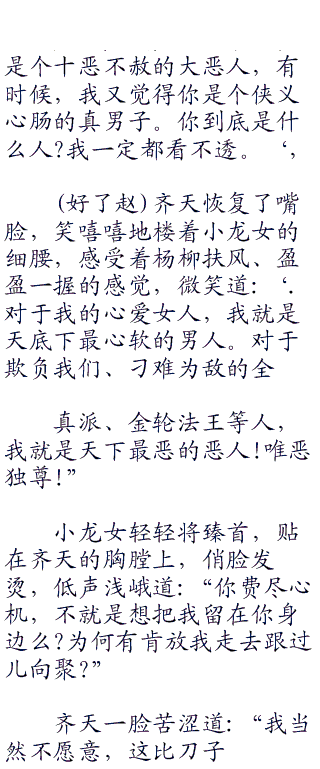 是个十恶不赦的大恶人，有
时候，我又觉得你是个侠义
心肠的真男子。你到底是什
么人?我一定都看不透。‘，
(好了赵)齐天恢复了嘴
脸，笑嘻嘻地楼着小龙女的
细腰，感受着杨柳扶风、盈
盈一握的感觉，微笑道:‘.
对于我的心爱女人，我就是
天底下最心软的男人。对于
欺负我们、刁难为敌的全
真派、金轮法王等人，
我就是天下最恶的恶人!唯恶
独尊!”
小龙女轻轻将臻首，贴
在齐天的胸膛上，俏脸发
烫，低声浅峨道:“你费尽心
机，不就是想把我留在你身
边么?为何有肯放我走去跟过
儿向聚?”
齐天一脸苦涩道:“我当
然不愿意，这比刀子